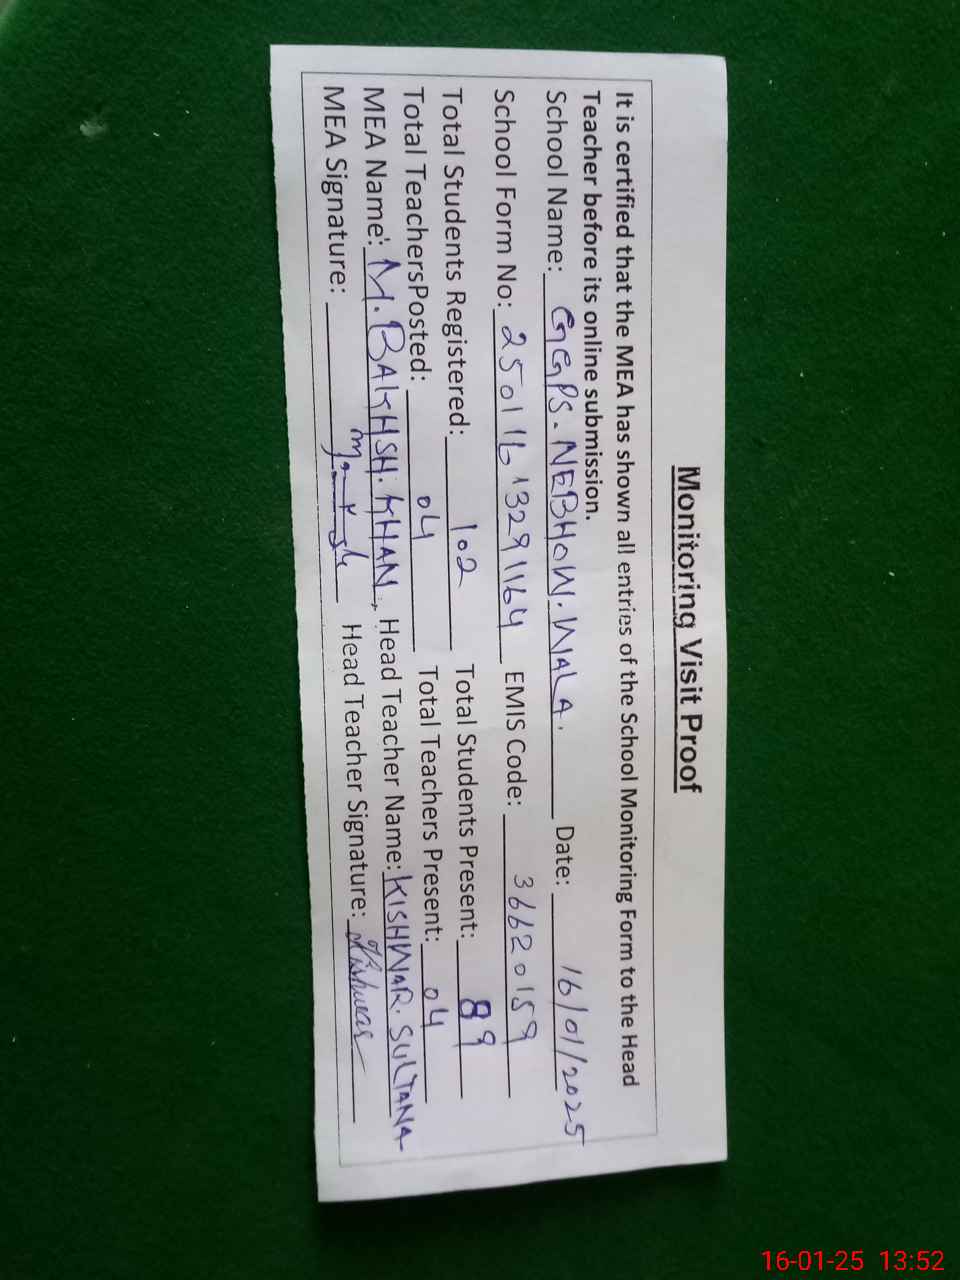 Monitoring Visit Proof
It is certified that the MEA has shown all entries of the School Monitoring Form to the Head
Teacher before its online submission.
School Name: GGPS. NEBHOW. WALA. Date: 16/01/2025
School Form No: 25011613291164 EMIS Code: 36620159
Total Students Registered: 102 Total Students Present: 89
Total TeachersPosted: 04 Total Teachers Present: 04
MEA Name: M. BAKHSH. KHAN, Head Teacher Name: KISHWAR. SULTANA
MEA Signature: Head Teacher Signature: Kishwar
16-01-25 13:52